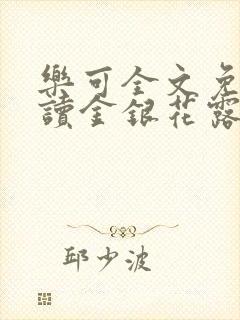 樂可全文免
讀金銀花露
邱少波